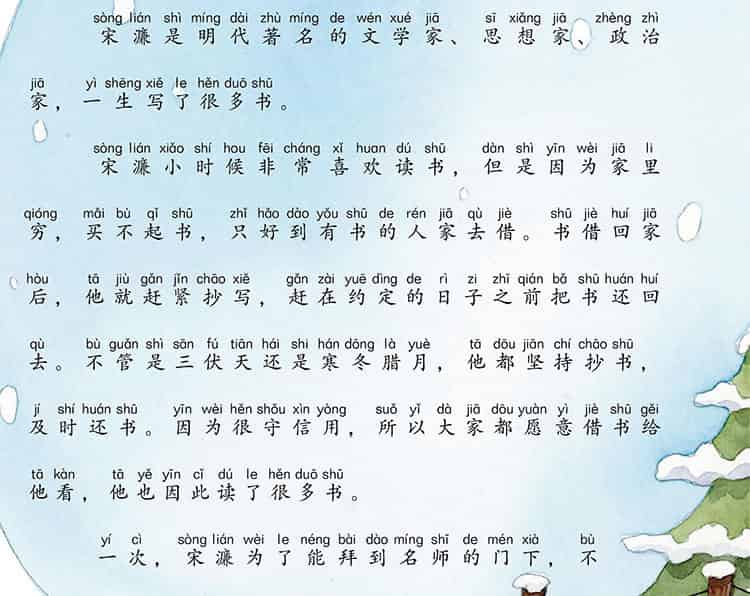 sòng lián shì míng dài zhù míng de wén xué jiā sī xiǎng jiā zhèng zhì
宋濂是明代著名的文学家、思想家、政治
jiā yì shēng xiě le hěn duō shū
家，一生写了很多书。
sòng lián xiǎo shí hou fēi cháng xǐ huan dú shū dàn shì yīn wèi jiā li
宋濂小时候非常喜欢读书，但是因为家里
qióng mǎi bù qǐ shū zhǐ hǎo dào yǒu shū de rén jiā qù jiè shū jiè huí jiā
穷，买不起书，只好到有书的人家去借。书借回家
hòu tā jiù gǎn jǐn chāo xiě gǎn zài yuē dìng de rì zi zhī qián bǎ shū huán huí
后，他就赶紧抄写，赶在约定的日子之前把书还回
qù bù guǎn shì sān fú tiān hái shi hán dōng là yuè tā dōu jiān chí chāo shū
去。不管是三伏天还是寒冬腊月，他都坚持抄书，
jí shí huán shū yīn wèi hěn shǒu xìn yòng suǒ yǐ dà jiā dōu yuàn yì jiè shū gěi
及时还书。因为很守信用，所以大家都愿意借书给
tā kàn tā yě yīn cǐ dú le hěn duō shū
他看，他也因此读了很多书。
yí cì sòng lián wèi le néng bài dào míng shī de mén xià bù
一次，宋濂为了能拜到名师的门下，不